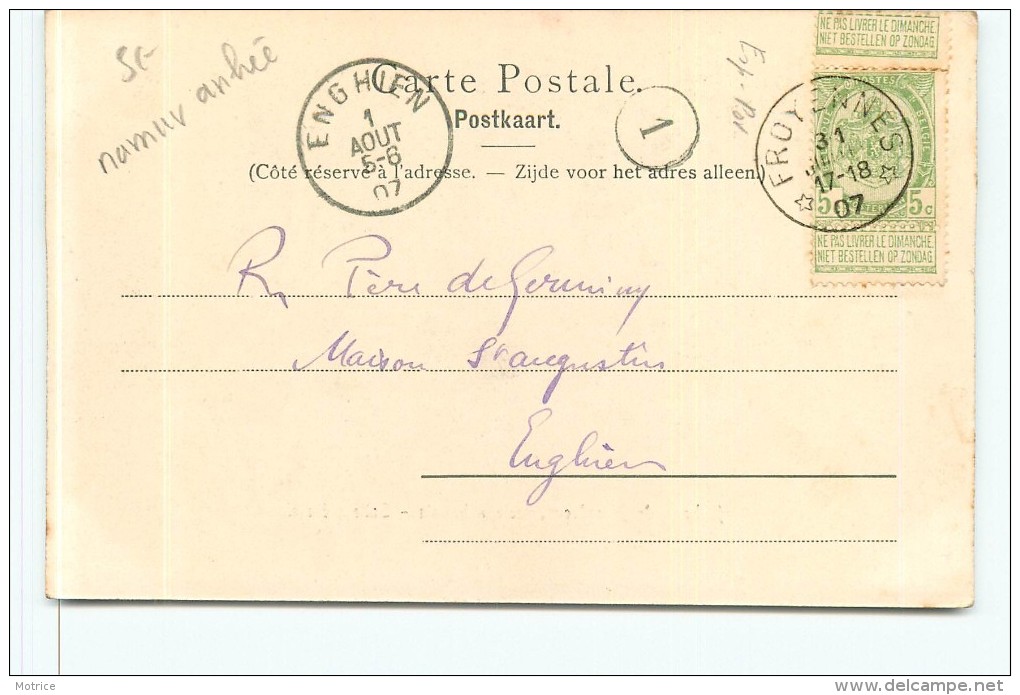 NE PAS LIVRER LE DIMANCHE.
NIET BESTELLEN OP ZONDAG.
5F
namur anhée
Carte Postale.
Postkaart.
(Côté réservé à l'adresse. — Zijde voor het adres alleen.)
ENGHIEN
1
AOUT
5-6
07
1
FROYENNES
31
17-18
07
POSTES
5c 5c
NE PAS LIVRER LE DIMANCHE.
NIET BESTELLEN OP ZONDAG.
R. Père de Germiny
Maison St augustin
Enghien
Motrice
delcampe.net